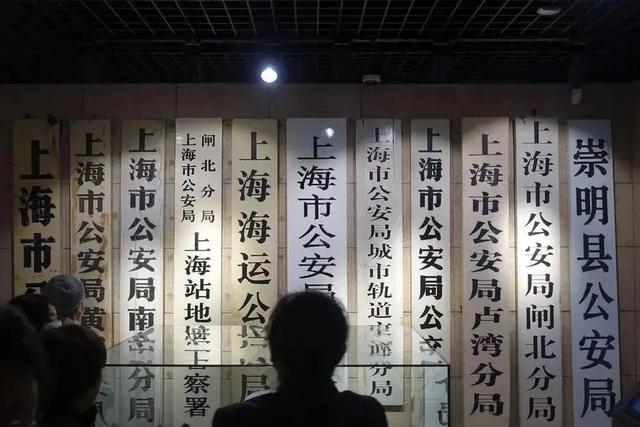 上海市公
上海市公安局黄
上海市公安局南市分局
上海市公安局
闸北分局
上海站地区警察署
上海海运公安局
上海市公安局
上海市公安局城市轨道交通分局
上海市公安局公
分局
上海市公安局卢湾分局
上海市公安局闸北分局
崇明县公安局